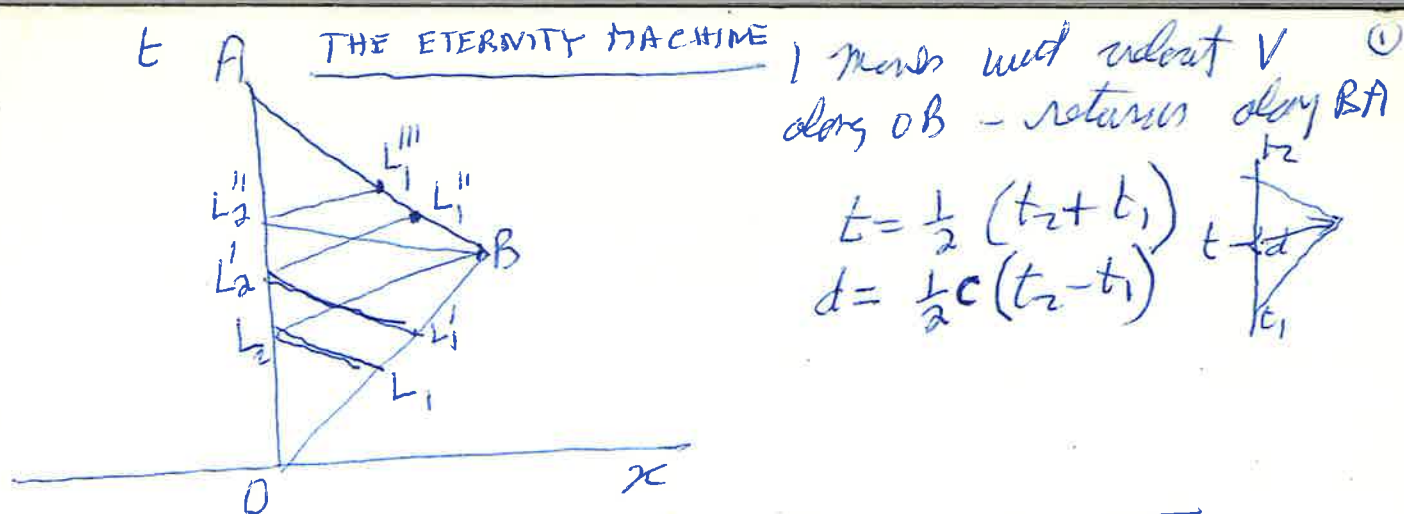 t
A
THE ETERNITY MACHINE
1 moves with velocity V
①
along OB - returns along BA
L₁'''
L₁''
L₂''
B
L₂'
L₂
L₁'
L₁
O
x
t = ½ (t₂ + t₁)
d = ½ c (t₂ - t₁)
t₂
t
d
t₁